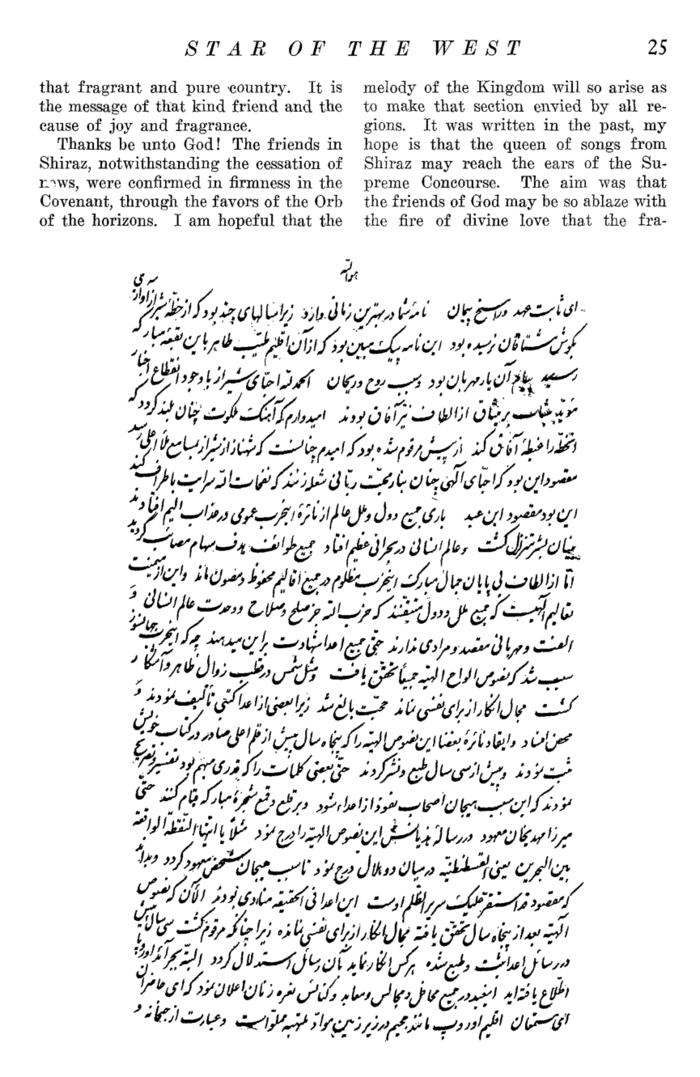 STAR OF THE WEST 25
that fragrant and pure country. It is
the message of that kind friend and the
cause of joy and fragrance.
Thanks be unto God! The friends in
Shiraz, notwithstanding the cessation of
news, were confirmed in firmness in the
Covenant, through the favors of the Orb
of the horizons. I am hopeful that the
melody of the Kingdom will so arise as
to make that section envied by all re-
gions. It was written in the past, my
hope is that the queen of songs from
Shiraz may reach the ears of the Su-
preme Concourse. The aim was that
the friends of God may be so ablaze with
the fire of divine love that the fra-
هوالله
ای ثابت عهد و راسخ پیمان نامه شما در بهترین زمانی وارد زیرا سالهای چند بود که از خطه شیراز آوازی
بگوش مشتاقان نرسیده بود این نامه پیک مبین بود که از آن اقلیم طیب طاهر باین بقعه مبارکه
رسید پیغام آن یار مهربان بود و سبب روح و ریحان الحمد لله احبای شیراز با وجود انقطاع اخبار
مؤید بثبات بر میثاق از الطاف نیر آفاق بودند امیدوارم که آهنگ ملکوت چنان بلند گردد که
آنخطه را غبطه آفاق کند از پیش مرقوم شده بود که امیدم چنانست که شهناز از شیراز بمسامع ملأ اعلی رسد
مقصود این بود که احبای الهی چنان بنار محبت ربانی شعله زنند که نفحات الله سرایت باطراف کند
این بود مقصود این عبد باری جمیع دول و ملل عالم از نائره اینحرب عمومی در عذاب الیم افتادند
بنیان بشر متزلزل گشت و عالم انسانی در بحرانی عظیم افتاد جمیع طوائف هدف سهام مصائب گردید
اما از الطاف بی پایان جمال مبارک اینحزب مظلوم در جمیع اقالیم محفوظ و مصون ماند و این از سمت
تعالیم الهیست که جمیع ملل و دول متیقنند که حزب الله جز صلح و صلاح و وحدت عالم انسانی و
الفت و مهربانی مقصد و مرادی ندارند حتی جمیع اعدا شهادت بر این میدهند چه که اینحرب جهانسوز
سبب شد که نصوص الواح الهیه جمیعاً تحقق یافت و مثل شمس در قطب زوال ظاهر و آشکار
گشت مجال انکار از برای نفسی نماند حجت بالغ شد زیرا بعضی از اعدا کتبی تألیف نمودند و
محض فساد و ایقاد نائره بغضا این نصوص الهیه را که پنجاه سال پیش از قلم اعلی صادر در کتاب خویش
ثبت نمودند و پیش از سی سال طبع و نشر کردند حتی بعضی کلمات را که قدری مبهم بود تفسیر و تصریح
نمودند که این سبب هیجان اصحاب نفوذ از اعداء شود و بر قلع و قمع شجره مبارکه قیام کنند حتی
میرزا مهدیخان معهود در رساله هذیانش این نصوص الهیه را درج نمود مثلاً یا ایتها النقطة الواقعة
بین البحرین یعنی القسطنطنیه در میان دو هلال درج نمود تا سبب هیجان شخص معهود گردد و بداند
که مقصود قد استقر علیک سریر الظلم اوست این اعدا فی الحقیقه منادی بودند الآن که نصوص
الهیه بعد از پنجاه سال تحقق یافته مجال انکار از برای نفسی نمانده زیرا چنانکه مرقوم گشت سی سال پیش
در رسائل اعدا ثبت و طبع شده هر کس انکار نماید بآن رسائل استدلال گردد البته بجرائد اروپا
اطلاع یافته اید اینعبد در جمیع محافل و مجالس و معابد و کنائس نعره زنان اعلان نمود که ای حاضران
ای مستمعان اقلیم اوروپ مانند جحیم در زیر زمین مواد ملتهبه مملو است و عبارت از جبخانه و